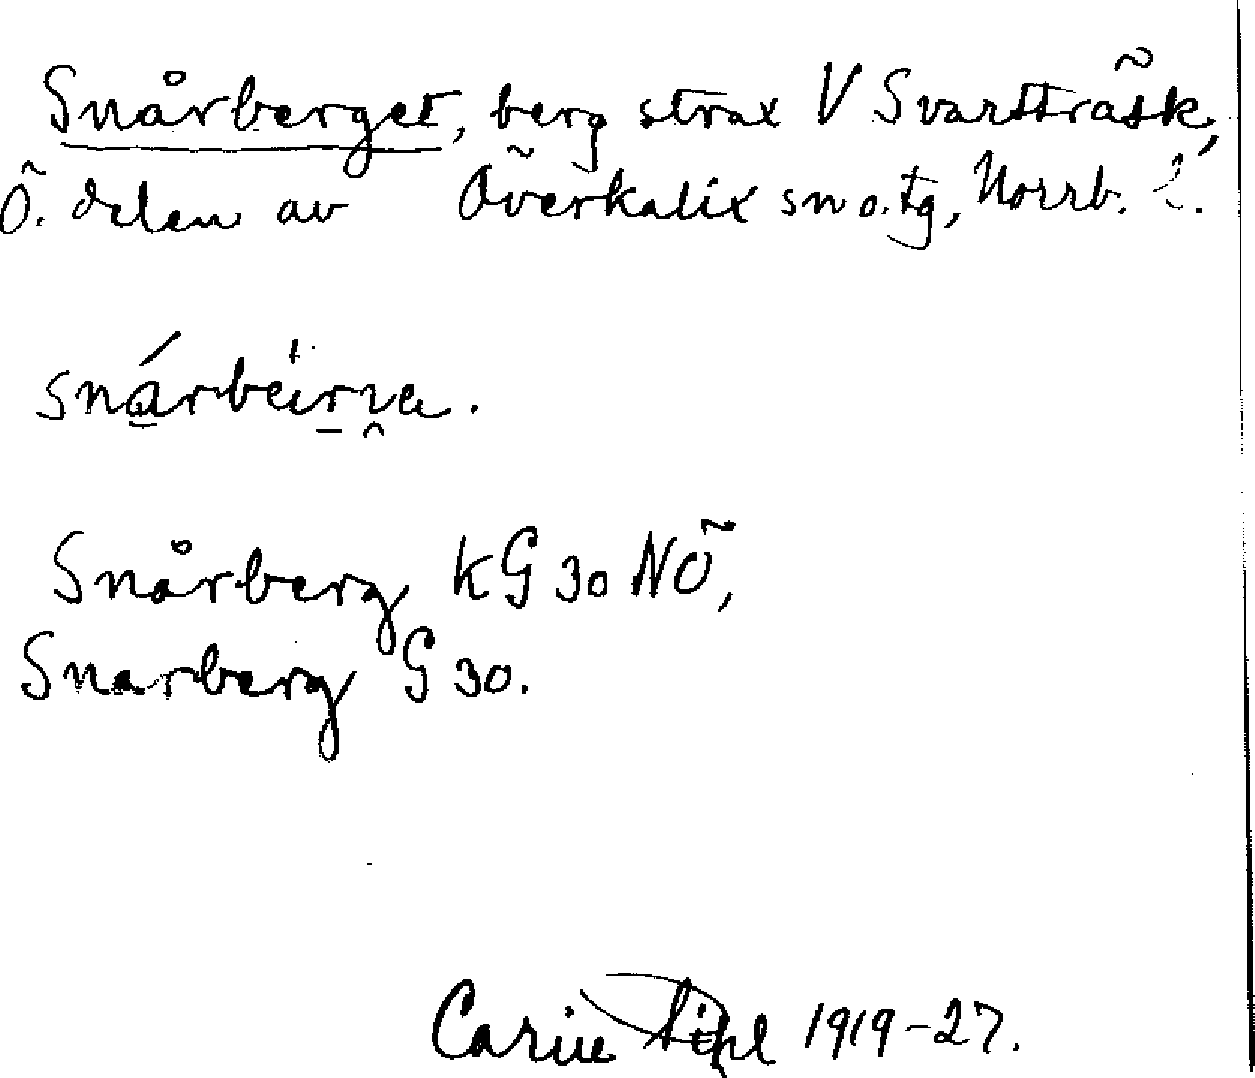 Snårberget, berg strax V Svartträsk,
Ö. delen av Överkalix sn o. tg, Norrb. l.
Snårberg KG 30 NÖ,
Snarberg G 30.
Carin Pihl 1919-27.